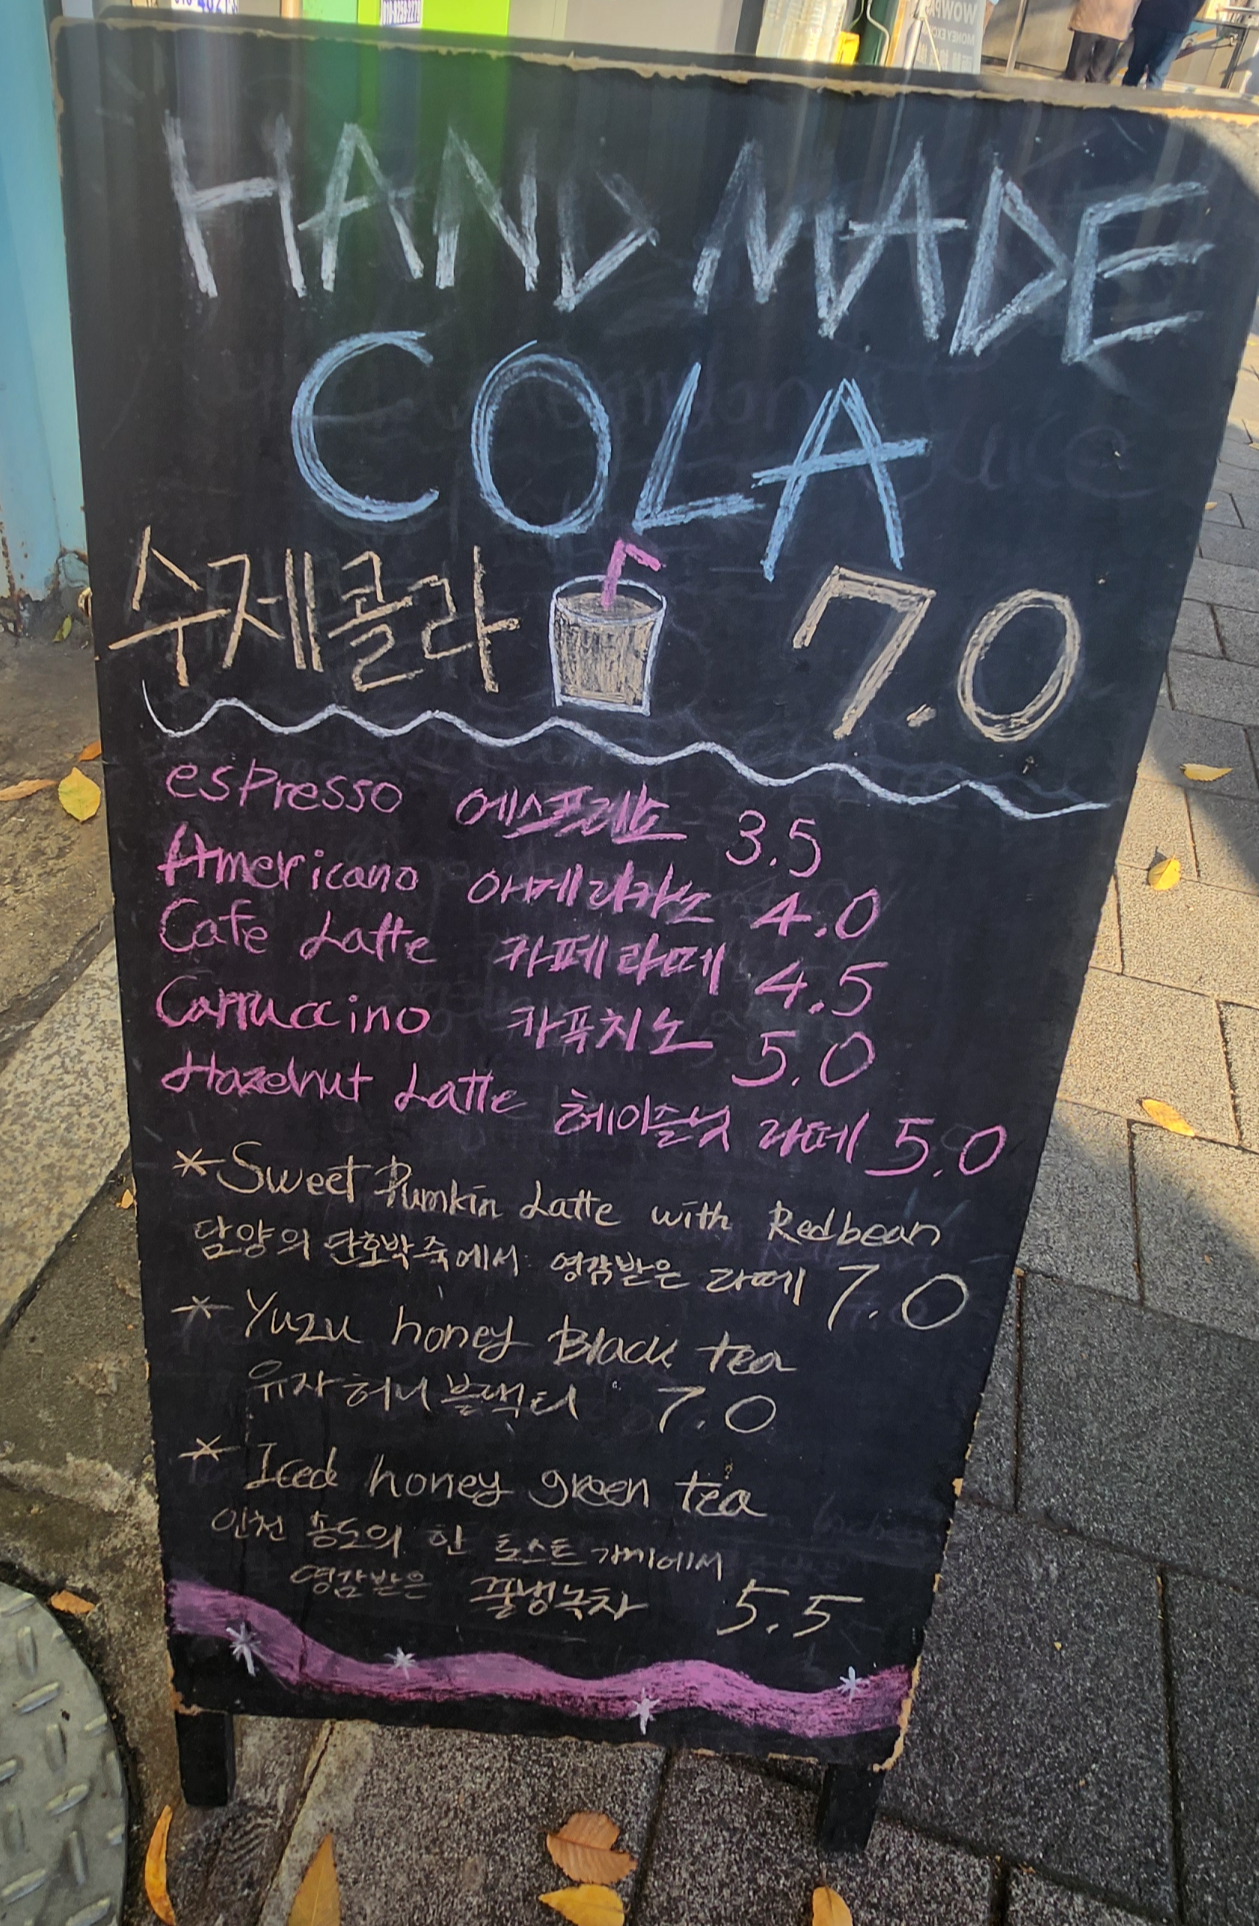 HAND MADE
COLA
수제콜라 7.0
espresso 에스프레쏘 3.5
Americano 아메리카노 4.0
Cafe Latte 카페라떼 4.5
Cappuccino 카푸치노 5.0
Hazelnut Latte 헤이즐넛 라떼 5.0
*Sweet Pumkin Latte with Redbean
담양의 단호박죽에서 영감받은 라떼 7.0
* Yuzu honey Black tea
유자허니블랙티 7.0
* Iced honey green tea
인천 송도의 한 토스트가게에서
영감받은 꿀냉녹차 5.5